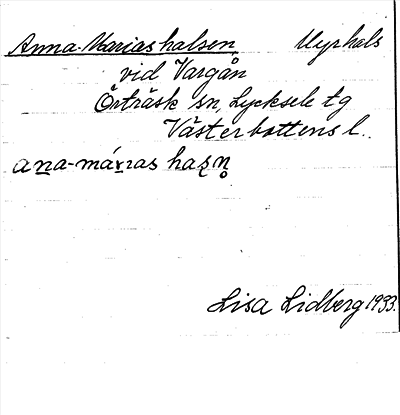 Anna-Mariashalsen Myrhals
vid Vargån
Örträsk sn, Lycksele tg
Västerbottens l.
ana-márias hasn̥
Lisa Lidberg 1933.